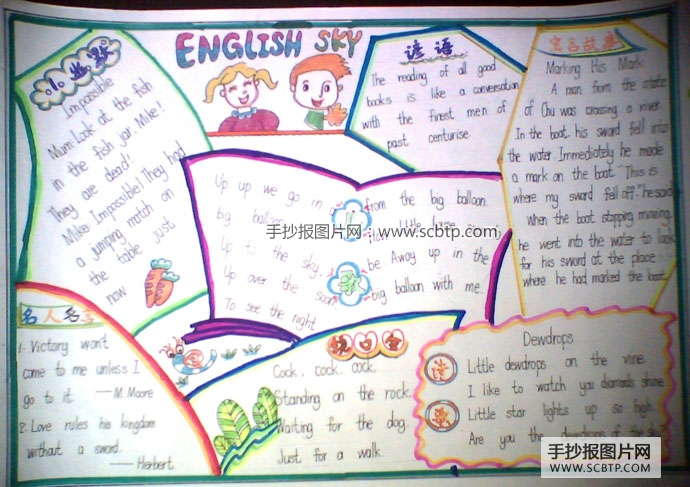 ENGLISH SKY
小幽默
Impossible
Mum: Look at the fish
in the fish jar, Mike!
They are dead!
Mike: Impossible! They had
a jumping match on
the table just
now
谚语
The reading of all good
books is like a conversation
with the finest men of
past centurise.
寓言故事
Marking His Mark
A man from the state
of Chu was crossing a river.
In the boat, his sword fell into
the water. Immediately he made
a mark on the boat. "This is
where my sword fell off," he said
when the boat stopping moving,
he went into the water to look
for his sword at the place
where he had marked the boat.
Up, up we go in
big balloon
Up to the sky
Up over the
To see the night
儿
歌
from the big balloon.
be Away up in the
big balloon with me.
手抄报图片网:www.scbtp.com
名人名言
1. Victory won't
come to me unless I
go to it. —M. Moore
2. Love rules his kingdom
without a sword.
—Herbert
绕口令
Cock, cock, cock.
Standing on the rock.
Waiting for the dog.
Just for a walk.
Dewdrops
Little dewdrops on the vine
I like to watch you diamonds shine
Little star lights up so high.
Are you the dewdrops of the sky?
手抄报图片网
WWW.SCBTP.COM